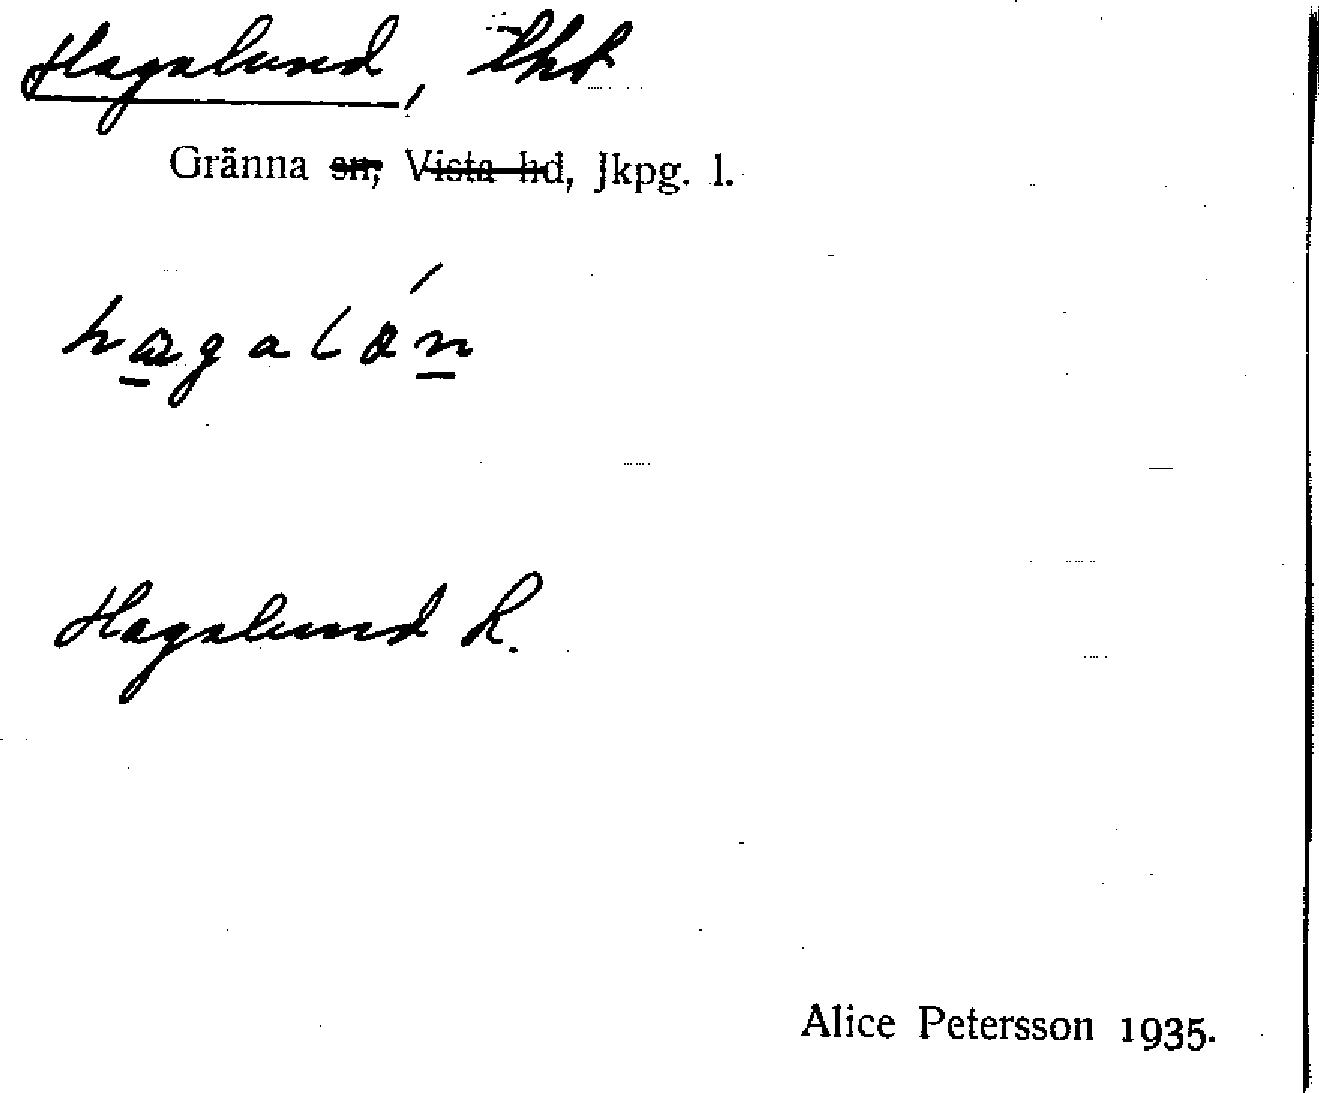 Hagalund, lht
Gränna sn, Vista hd, Jkpg. l.
Hagalund R.
Alice Petersson 1935.